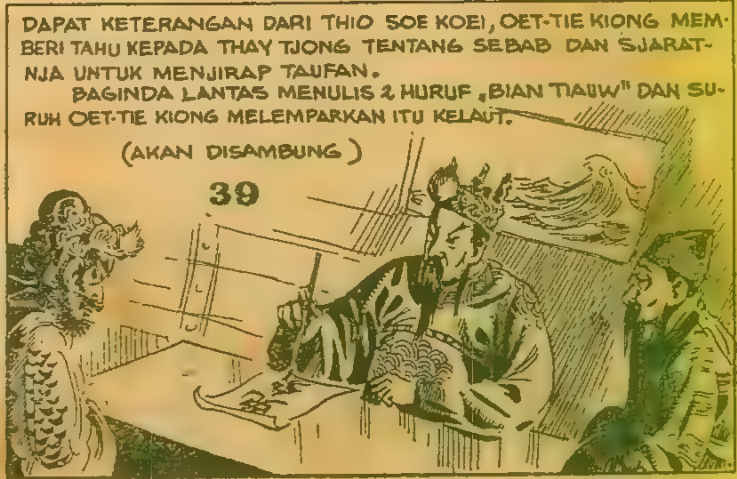 DAPAT KETERANGAN DARI THIO SOE KOEI, OET-TIE KIONG MEM-
BERI TAHU KEPADA THAY TJONG TENTANG SEBAB DAN SJARAT-
NJA UNTUK MENJIRAP TAUFAN.
BAGINDA LANTAS MENULIS 2 HURUF „BIAN TIAUW" DAN SU-
RUH OET-TIE KIONG MELEMPARKAN ITU KELAUT.
(AKAN DISAMBUNG)
39